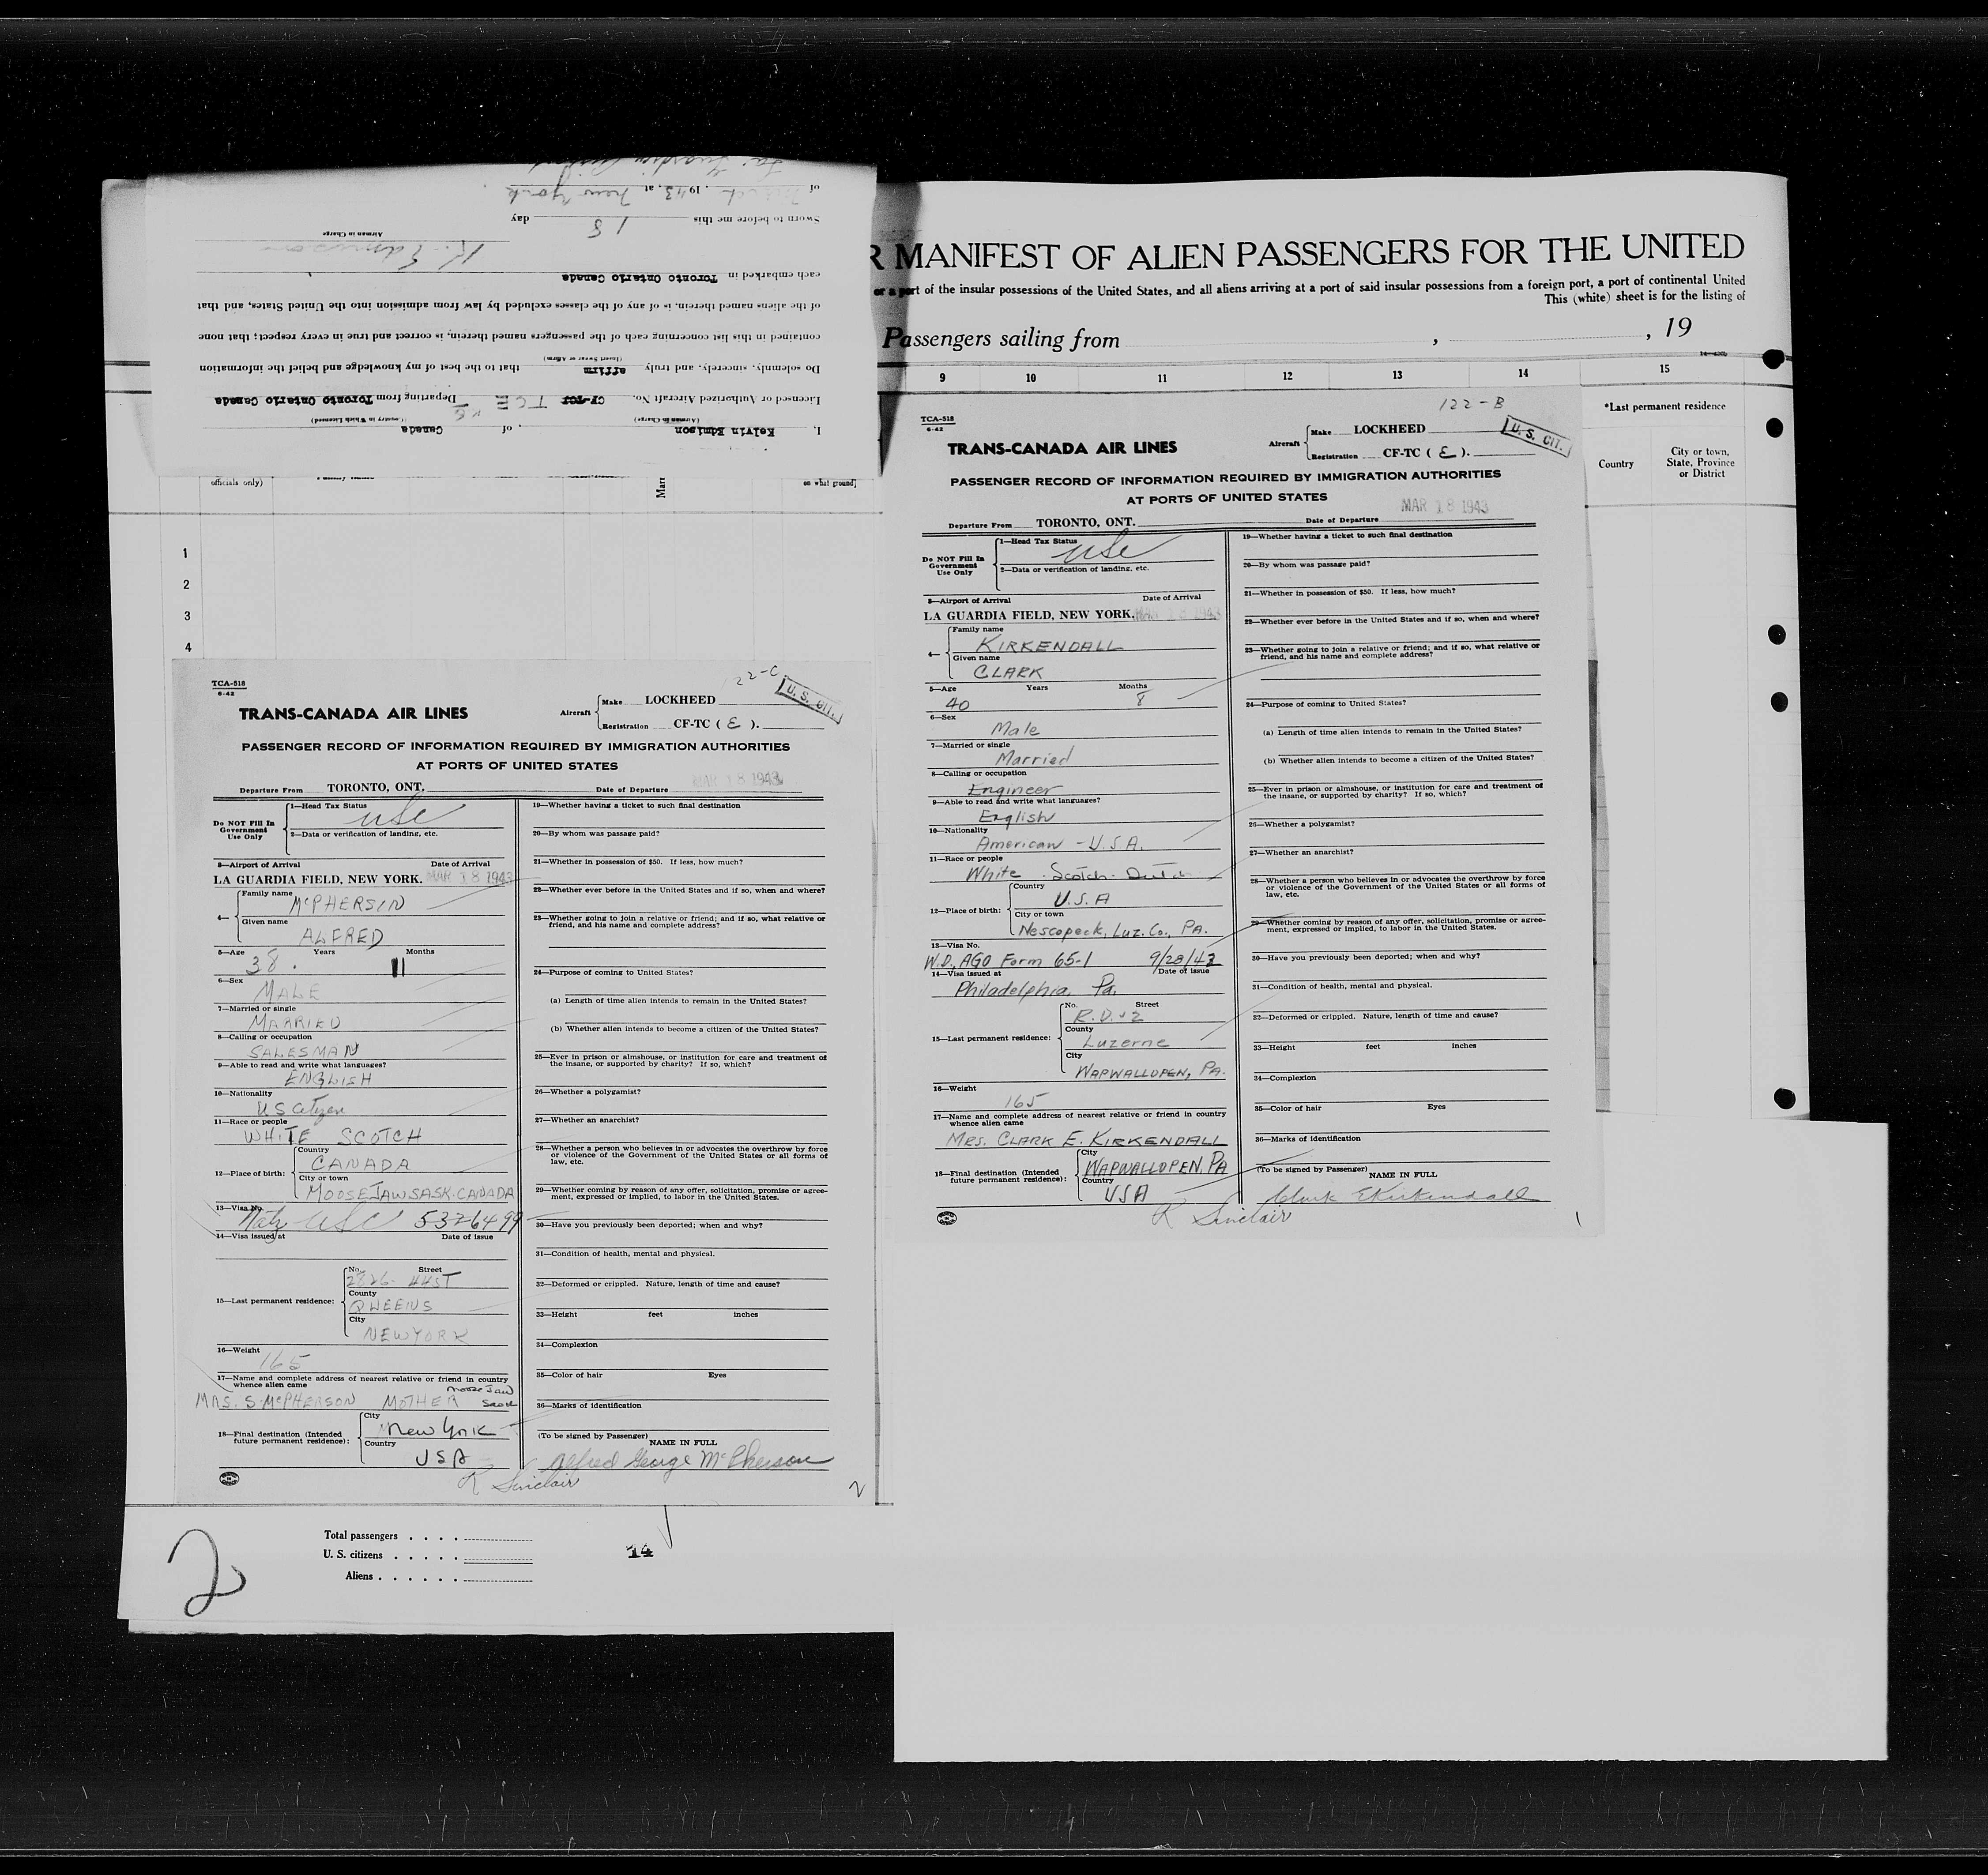 I, Kelvin Edmison, of Canada
(Airman in Charge) (Country in Which Licensed)
Licensed or Authorized Aircraft No. CF-TCE Departing from Toronto Ontario Canada
Do solemnly, sincerely, and truly affirm that to the best of my knowledge and belief the information
(Insert Swear or Affirm)
contained in this list concerning each of the passengers named therein, is correct and true in every respect; that none
of the aliens named therein, is of any of the classes excluded by law from admission into the United States, and that
each embarked in Toronto Ontario Canada
K. Edmison
Airman in Charge
Sworn to before me this 18 day
of March, 1943, at New York
officials only)
on what ground]
1
2
3
4
R MANIFEST OF ALIEN PASSENGERS FOR THE UNITED
or a port of the insular possessions of the United States, and all aliens arriving at a port of said insular possessions from a foreign port, a port of continental United
This (white) sheet is for the listing of
Passengers sailing from , , 19
9 10 11 12 13 14 15
*Last permanent residence
Country
City or town,
State, Province
or District
TCA-518
6-42
22-C
U. S. CIT.
TRANS-CANADA AIR LINES
Aircraft Make LOCKHEED
Registration CF-TC ( E ).
PASSENGER RECORD OF INFORMATION REQUIRED BY IMMIGRATION AUTHORITIES
AT PORTS OF UNITED STATES
Departure From TORONTO, ONT. Date of Departure MAR 18 1943
Do NOT Fill In
Government
Use Only
1—Head Tax Status
USC
2—Data or verification of landing, etc.
3—Airport of Arrival Date of Arrival
LA GUARDIA FIELD, NEW YORK. MAR 18 1943
4— Family name
McPHERSON
Given name
ALFRED
5—Age Years Months
38. 11
6—Sex
MALE
7—Married or single
MARRIED
8—Calling or occupation
SALESMAN
9—Able to read and write what languages?
ENGLISH
10—Nationality
US Citizen
11—Race or people
WHITE SCOTCH
12—Place of birth: Country
CANADA
City or town
MOOSEJAW SASK. CANADA
13—Visa No.
Natz USC 5376499
14—Visa issued at Date of issue
15—Last permanent residence: No. Street
2826- 44ST
County
QUEENS
City
NEW YORK
16—Weight
165
17—Name and complete address of nearest relative or friend in country
whence alien came
MRS. S. McPHERSON MOTHER Moose Jaw
Sask
18—Final destination (Intended
future permanent residence): City
New York
Country
USA
19—Whether having a ticket to such final destination
20—By whom was passage paid?
21—Whether in possession of $50. If less, how much?
22—Whether ever before in the United States and if so, when and where?
23—Whether going to join a relative or friend; and if so, what relative or
friend, and his name and complete address?
24—Purpose of coming to United States?
(a) Length of time alien intends to remain in the United States?
(b) Whether alien intends to become a citizen of the United States?
25—Ever in prison or almshouse, or institution for care and treatment of
the insane, or supported by charity? If so, which?
26—Whether a polygamist?
27—Whether an anarchist?
28—Whether a person who believes in or advocates the overthrow by force
or violence of the Government of the United States or all forms of
law, etc.
29—Whether coming by reason of any offer, solicitation, promise or agree-
ment, expressed or implied, to labor in the United States.
30—Have you previously been deported; when and why?
31—Condition of health, mental and physical.
32—Deformed or crippled. Nature, length of time and cause?
33—Height feet inches
34—Complexion
35—Color of hair Eyes
36—Marks of identification
(To be signed by Passenger)
NAME IN FULL
Alfred George McPherson
R Sinclair
2
Total passengers . . . .
U. S. citizens . . . . .
Aliens . . . . . .
14
2
122-B
TCA-518
6-42
U. S. CIT.
TRANS-CANADA AIR LINES
Aircraft Make LOCKHEED
Registration CF-TC ( E ).
PASSENGER RECORD OF INFORMATION REQUIRED BY IMMIGRATION AUTHORITIES
AT PORTS OF UNITED STATES
Departure From TORONTO, ONT. Date of Departure MAR 18 1943
Do NOT Fill In
Government
Use Only
1—Head Tax Status
USC
2—Data or verification of landing, etc.
3—Airport of Arrival Date of Arrival
LA GUARDIA FIELD, NEW YORK. MAR 18 1943
4— Family name
KIRKENDALL
Given name
CLARK
5—Age Years Months
40 8
6—Sex
Male
7—Married or single
Married
8—Calling or occupation
Engineer
9—Able to read and write what languages?
English
10—Nationality
American - U.S.A.
11—Race or people
White - Scotch - Dutch
12—Place of birth: Country
U.S.A
City or town
Nescopeck, Luz. Co., PA.
13—Visa No.
W.D., AGO Form 65-1 9/28/42
14—Visa issued at Date of issue
Philadelphia, Pa.
15—Last permanent residence: No. Street
R.D. #2
County
Luzerne
City
WAPWALLOPEN, PA.
16—Weight
165
17—Name and complete address of nearest relative or friend in country
whence alien came
MRS. CLARK E. KIRKENDALL
18—Final destination (Intended
future permanent residence): City
WAPWALLOPEN, PA
Country
USA
19—Whether having a ticket to such final destination
20—By whom was passage paid?
21—Whether in possession of $50. If less, how much?
22—Whether ever before in the United States and if so, when and where?
23—Whether going to join a relative or friend; and if so, what relative or
friend, and his name and complete address?
24—Purpose of coming to United States?
(a) Length of time alien intends to remain in the United States?
(b) Whether alien intends to become a citizen of the United States?
25—Ever in prison or almshouse, or institution for care and treatment of
the insane, or supported by charity? If so, which?
26—Whether a polygamist?
27—Whether an anarchist?
28—Whether a person who believes in or advocates the overthrow by force
or violence of the Government of the United States or all forms of
law, etc.
29—Whether coming by reason of any offer, solicitation, promise or agree-
ment, expressed or implied, to labor in the United States.
30—Have you previously been deported; when and why?
31—Condition of health, mental and physical.
32—Deformed or crippled. Nature, length of time and cause?
33—Height feet inches
34—Complexion
35—Color of hair Eyes
36—Marks of identification
(To be signed by Passenger)
NAME IN FULL
Clark E Kirkendall
R Sinclair
1